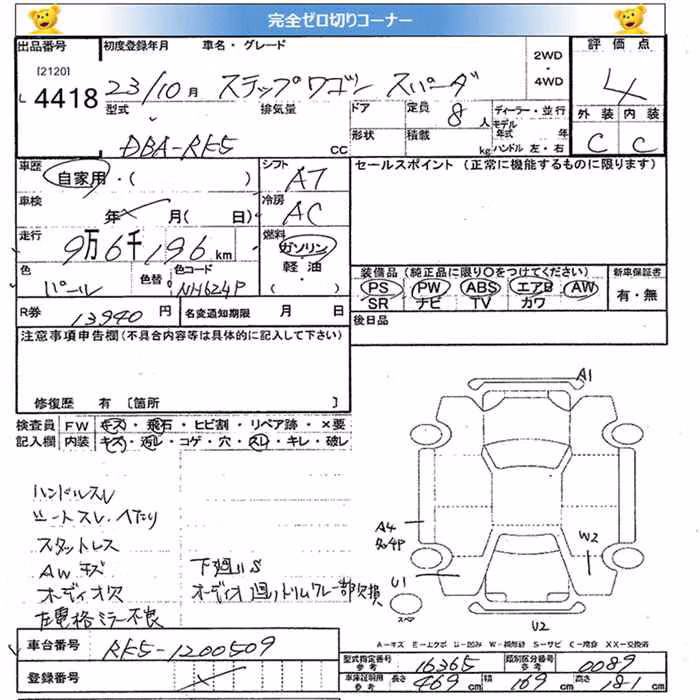 完全ゼロ切りコーナー
出品番号 初度登録年月 車名・グレード 2WD・4WD 評価点
[2120]
4418 23/10月 ステップワゴン スパーダ 4
型式 排気量 ドア 定員 8人 ディーラー・並行 外装 内装
モデル年式 年
DBA-RK5 cc 形状 積載 kg ハンドル 左・右 C C
車歴 自家用・( ) シフト AT セールスポイント (正常に機能するものに限ります)
車検 年 月(日) 冷房 AC
走行 9万6千196km 燃料 ガソリン・軽油・( )
色 パール 色替 色コード NH624P
装備品(純正品に限り○をつけてください) 新車保証書
PS PW ABS エアB AW 有・無
SR ナビ TV カワ
R券 13940円 名変通知期限 月 日 後日品
注意事項申告欄(不具合内容等は具体的に記入して下さい)
修復歴 有 [箇所 ]
検査員 FW キズ・飛石・ヒビ割・リペア跡・×要
記入欄 内装 キズ・汚レ・コゲ・穴・スレ・キレ・破レ
A1
ハンドルスレ
シートスレ・ヘたり
スタットレス
AWキズ 下廻りS
オーディオ欠 オーディオ廻りトリムワレ一部欠損
左電格ミラー不良
A4
W2
U1
スペア
U2
A-キズ E-エクボ U-凹み W-補修跡 S-サビ C-腐食 XX-交換済
車台番号 RK5-1200509
登録番号
型式指定番号 参考 16365 類別区分番号 参考 0089
車庫証明用 参考 長さ 469cm 幅 169cm 高さ 181cm